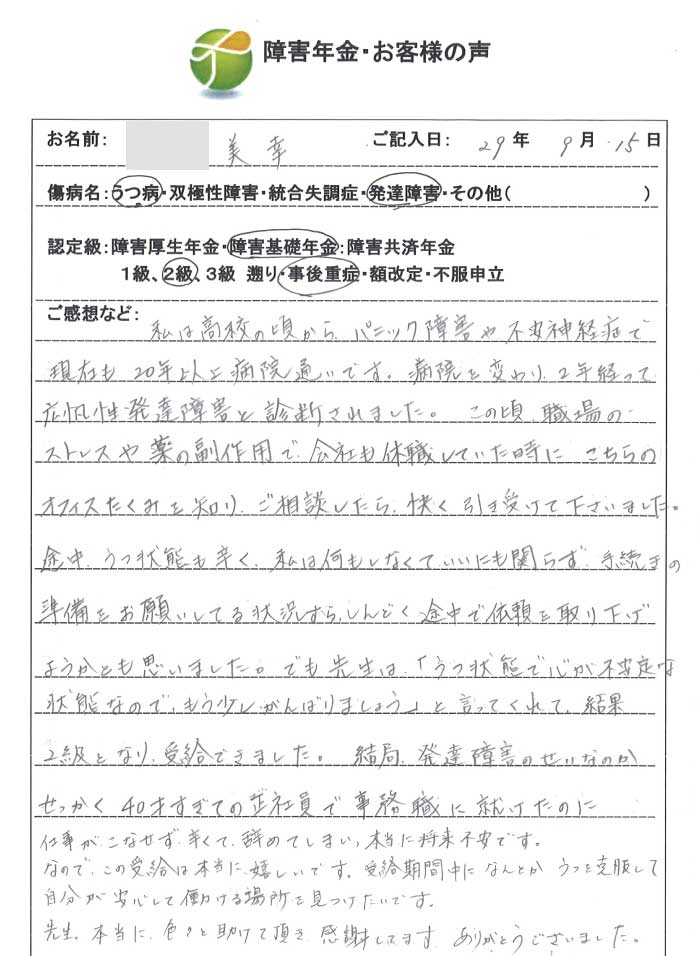 障害年金・お客様の声
お名前: 美幸 ご記入日: 29 年 9 月 15 日
傷病名:うつ病・双極性障害・統合失調症・発達障害・その他( )
認定級:障害厚生年金・障害基礎年金:障害共済年金
1級、2級、3級 遡り・事後重症・額改定・不服申立
ご感想など:
私は高校の頃から、パニック障害や不安神経症で
現在も20年以上病院通いです。病院を変わり、2年経って
症汎性発達障害と診断されました。この頃、職場の
ストレスや薬の副作用で、会社も休職していた時に こちらの
オフィスたくみを知り、ご相談したら、快く引き受けて下さいました。
途中、うつ状態も辛く、私は何もしなくていいにも関らず、手続きの
準備をお願いしてる状況すら、しんどく途中で依頼を取り下げ
ようかとも思いました。でも先生は、「うつ状態で心が不安定な
状態なので、もう少しがんばりましょう」と言ってくれて、結果
2級となり、受給できました。 結局、発達障害のせいなのか
せっかく40才すぎての正社員で事務職に就けたのに
仕事がこなせず、辛くて、辞めてしまい、本当に将来不安です。
なので、この受給は本当に、嬉しいです。受給期間中になんとか うつを克服して
自分が安心して働ける場所を見つけたいです。
先生、本当に、色々と助けて頂き、感謝してます。ありがとうございました。